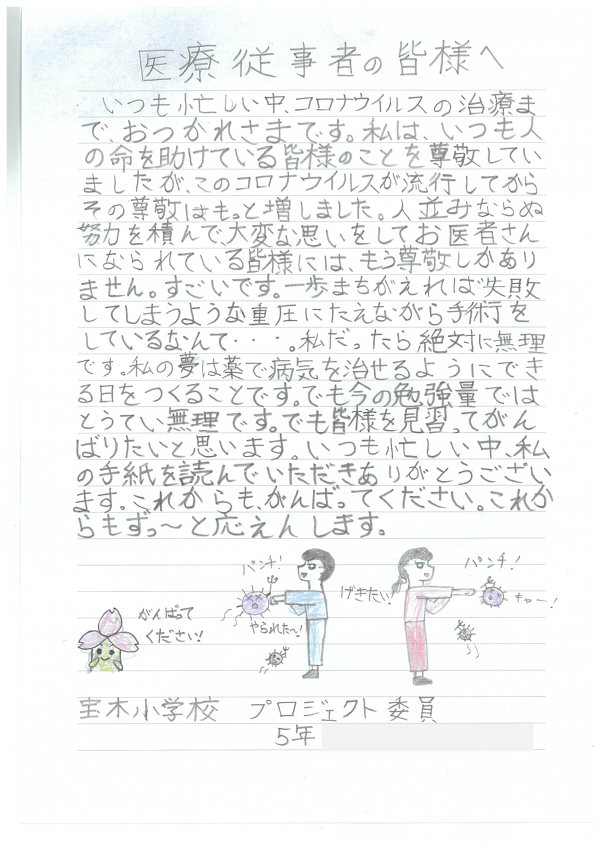 医療従事者の皆様へ
いつも忙しい中、コロナウイルスの治療ま
で、おつかれさまです。私は、いつも人
の命を助けている皆様のことを尊敬してい
ましたが、このコロナウイルスが流行してから
その尊敬はもっと増しました。人並みならぬ
努力を積んで、大変な思いをしてお医者さん
になられている皆様には、もう尊敬しかあり
ません。すごいです。一歩まちがえれば失敗
してしまうような重圧にたえながら手術を
しているなんて・・・。私だったら絶対に無理
です。私の夢は薬で病気を治せるようにでき
る日をつくることです。でも今の勉強量では
とうてい無理です。でも皆様を見習ってがん
ばりたいと思います。いつも忙しい中、私
の手紙を読んでいただきありがとうござい
ます。これからも、がんばってください。これか
らもずっ〜と応えんします。
パンチ!
パンチ!
げきたい!
キャー!
がんばって
ください!
やられた〜!
宝木小学校 プロジェクト委員
5年